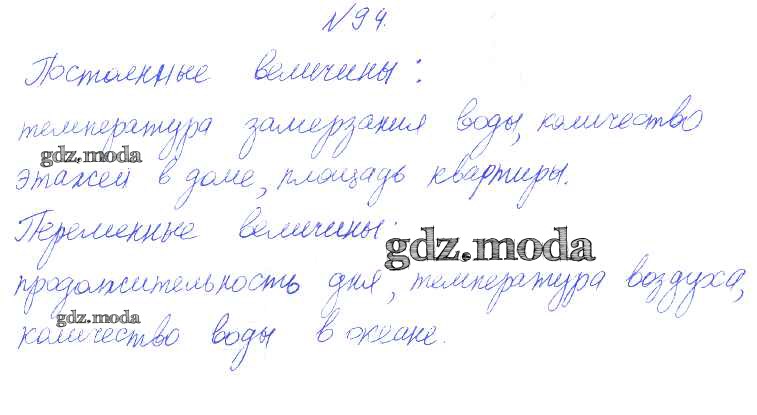 №94.
Постоянные величины:
температура замерзания воды, количество
gdz.moda
этажей в доме, площадь квартиры.
Переменные величины:
gdz.moda
продолжительность дня, температура воздуха,
gdz.moda
количество воды в океане.